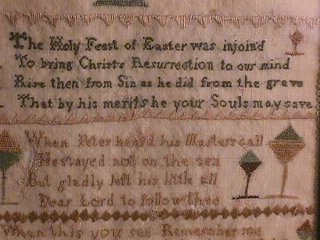 The Holy Feast of Easter was injoind
To bring Christs Resurrection to our mind
Rise then from Sin as he did from the grave
That by his merits he your Souls may save
When Peter heard his Masters call
He stayed not on the sea
But gladly left his little all
Dear Lord to follow thee
When this you see Remember me